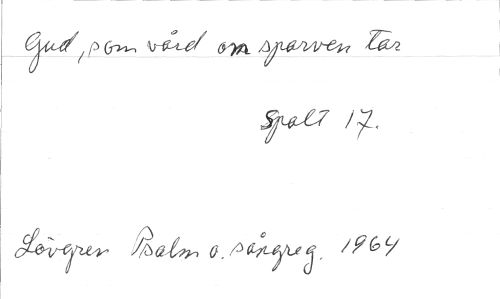 Gud, som vård om sparven tar
Spalt 17.
Lövgren Psalm o. sångreg. 1964